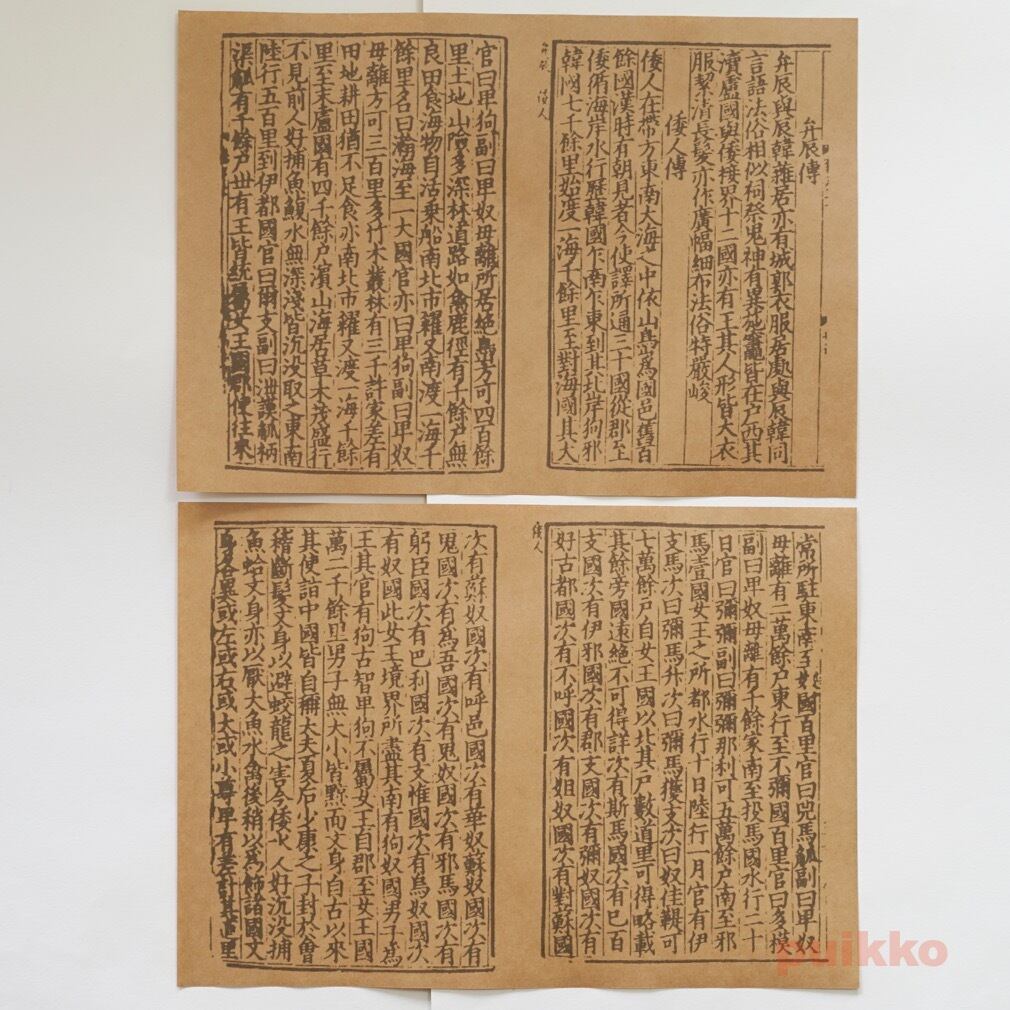 弁辰傳
弁辰與辰韓雜居亦有城郭衣服居處與辰韓同
言語法俗相似祠祭鬼神有異施竈皆在戶西其
瀆盧國與倭接界十二國亦有王其人形皆大衣
服絜清長髮亦作廣幅細布法俗特嚴峻
倭人傳
倭人在帶方東南大海之中依山㠀爲國邑舊百
餘國漢時有朝見者今使譯所通三十國從郡至
倭循海岸水行歷韓國乍南乍東到其北岸狗邪
韓國七千餘里始度一海千餘里至對海國其大
弁辰 倭人
官曰卑狗副曰卑奴毋離所居絕㠀方可四百餘
里土地山險多深林道路如禽鹿徑有千餘戶無
良田食海物自活乗船南北市糴又南渡一海千
餘里名曰瀚海至一大國官亦曰卑狗副曰卑奴
毋離方可三百里多竹木叢林有三千許家差有
田地耕田猶不足食亦南北市糴又渡一海千餘
里至末盧國有四千餘戶濱山海居草木茂盛行
不見前人好捕魚鰒水無深淺皆沉没取之東南
陸行五百里到伊都國官曰爾支副曰泄謨觚柄
渠觚有千餘戶丗有王皆統屬女王國郡使往來
常所駐東南至奴國百里官曰兕馬觚副曰卑奴
毋離有二萬餘戶東行至不彌國百里官曰多模
副曰卑奴毋離有千餘家南至投馬國水行二十
日官曰彌彌副曰彌彌那利可五萬餘戶南至邪
馬壹國女王之所都水行十日陸行一月官有伊
支馬次曰彌馬升次曰彌馬獲支次曰奴佳鞮可
七萬餘戶自女王國以北其戶數道里可得略載
其餘旁國遠絕不可得詳次有斯馬國次有巳百
支國次有伊邪國次有郡支國次有彌奴國次有
好古都國次有不呼國次有姐奴國次有對蘇國
倭人
次有蘇奴國次有呼邑國次有華奴蘇奴國次有
鬼國次有爲吾國次有鬼奴國次有邪馬國次有
躬臣國次有巴利國次有支惟國次有烏奴國次
有奴國此女王境界所盡其南有狗奴國男子爲
王其官有狗古智卑狗不屬女王自郡至女王國
萬二千餘里男子無大小皆黥面文身自古以來
其使詣中國皆自稱大夫夏后少康之子封於會
稽斷髮文身以避蛟龍之害今倭水人好沉没捕
魚蛤文身亦以厭大魚水禽後稍以爲飾諸國文
身各異或左或右或大或小尊卑有差計其道里
puikko